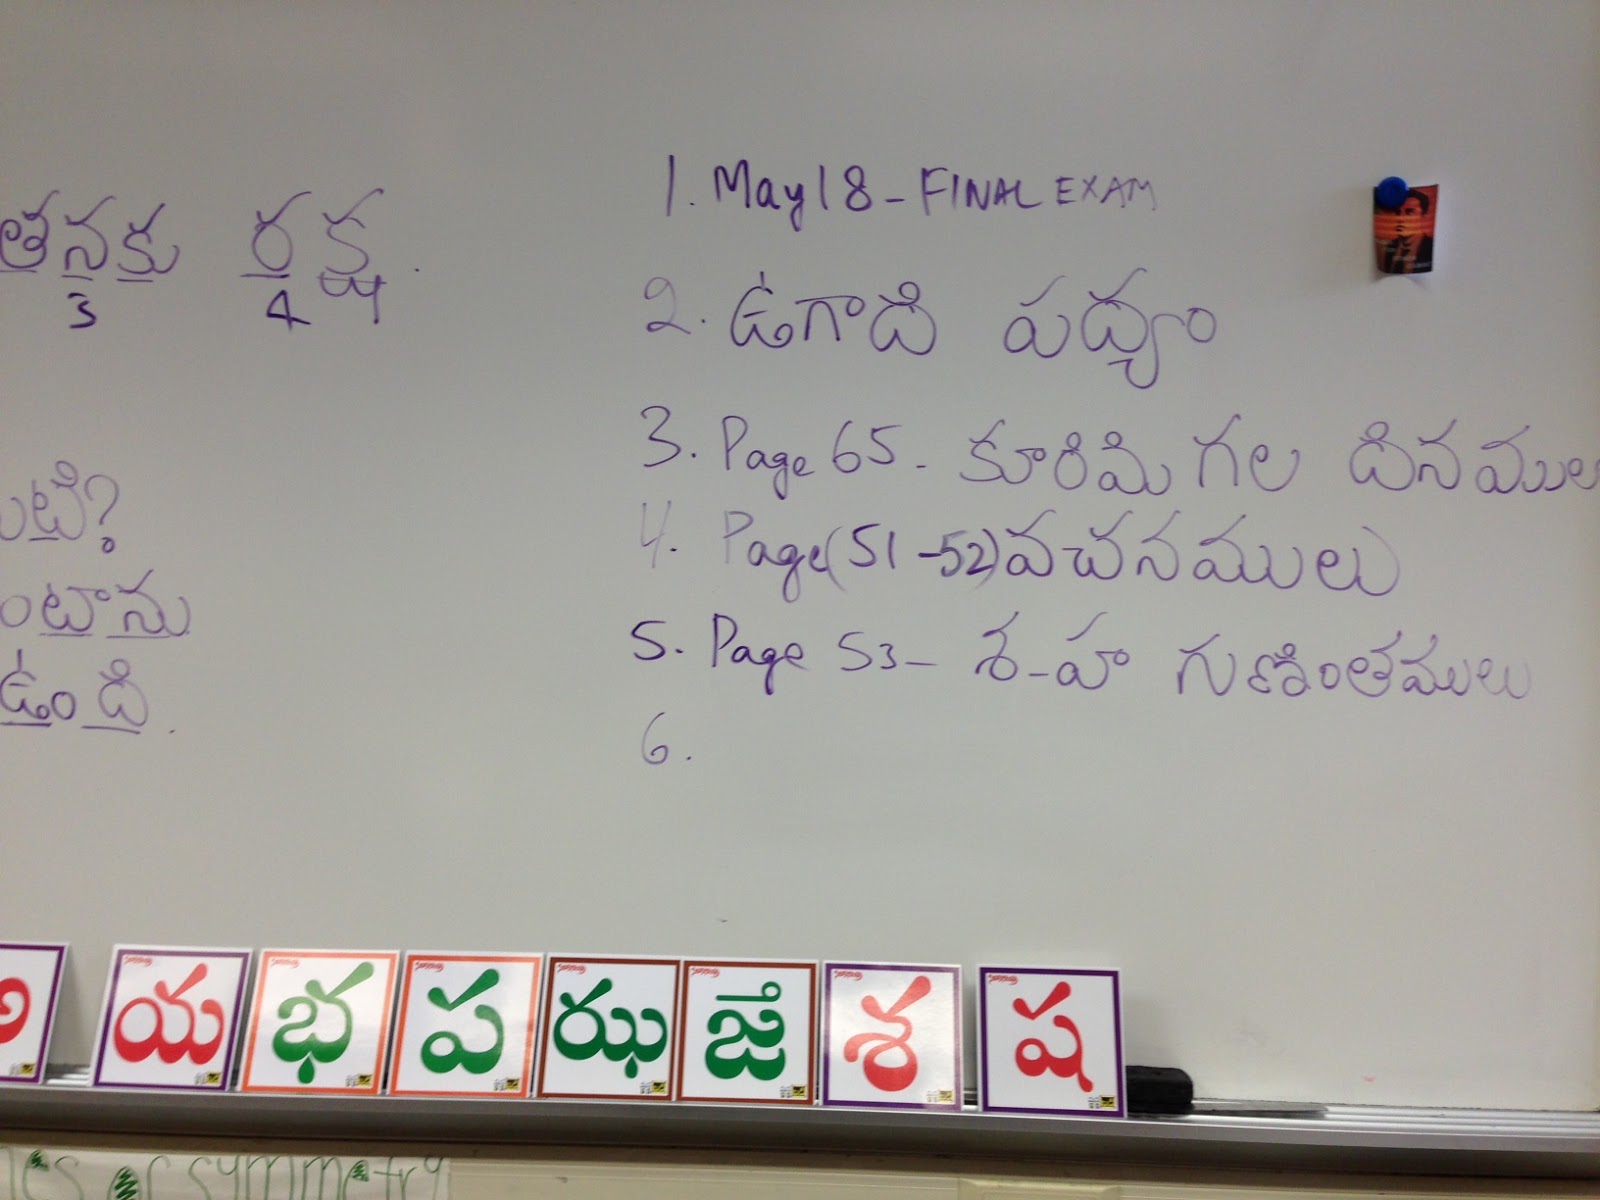 తనకు రక్ష.
3 4
టి?
ంటాను
ఉంది.
1. May 18 - FINAL EXAM
2. ఉగాది పద్యం
3. Page 65 - కూరిమి గల దినముల
4. Page (51-52) వచనములు
5. Page 53 - శ-హ గుణింతములు
6.
య భ ప ఝ జ్ఞ శ ష
of symmetry